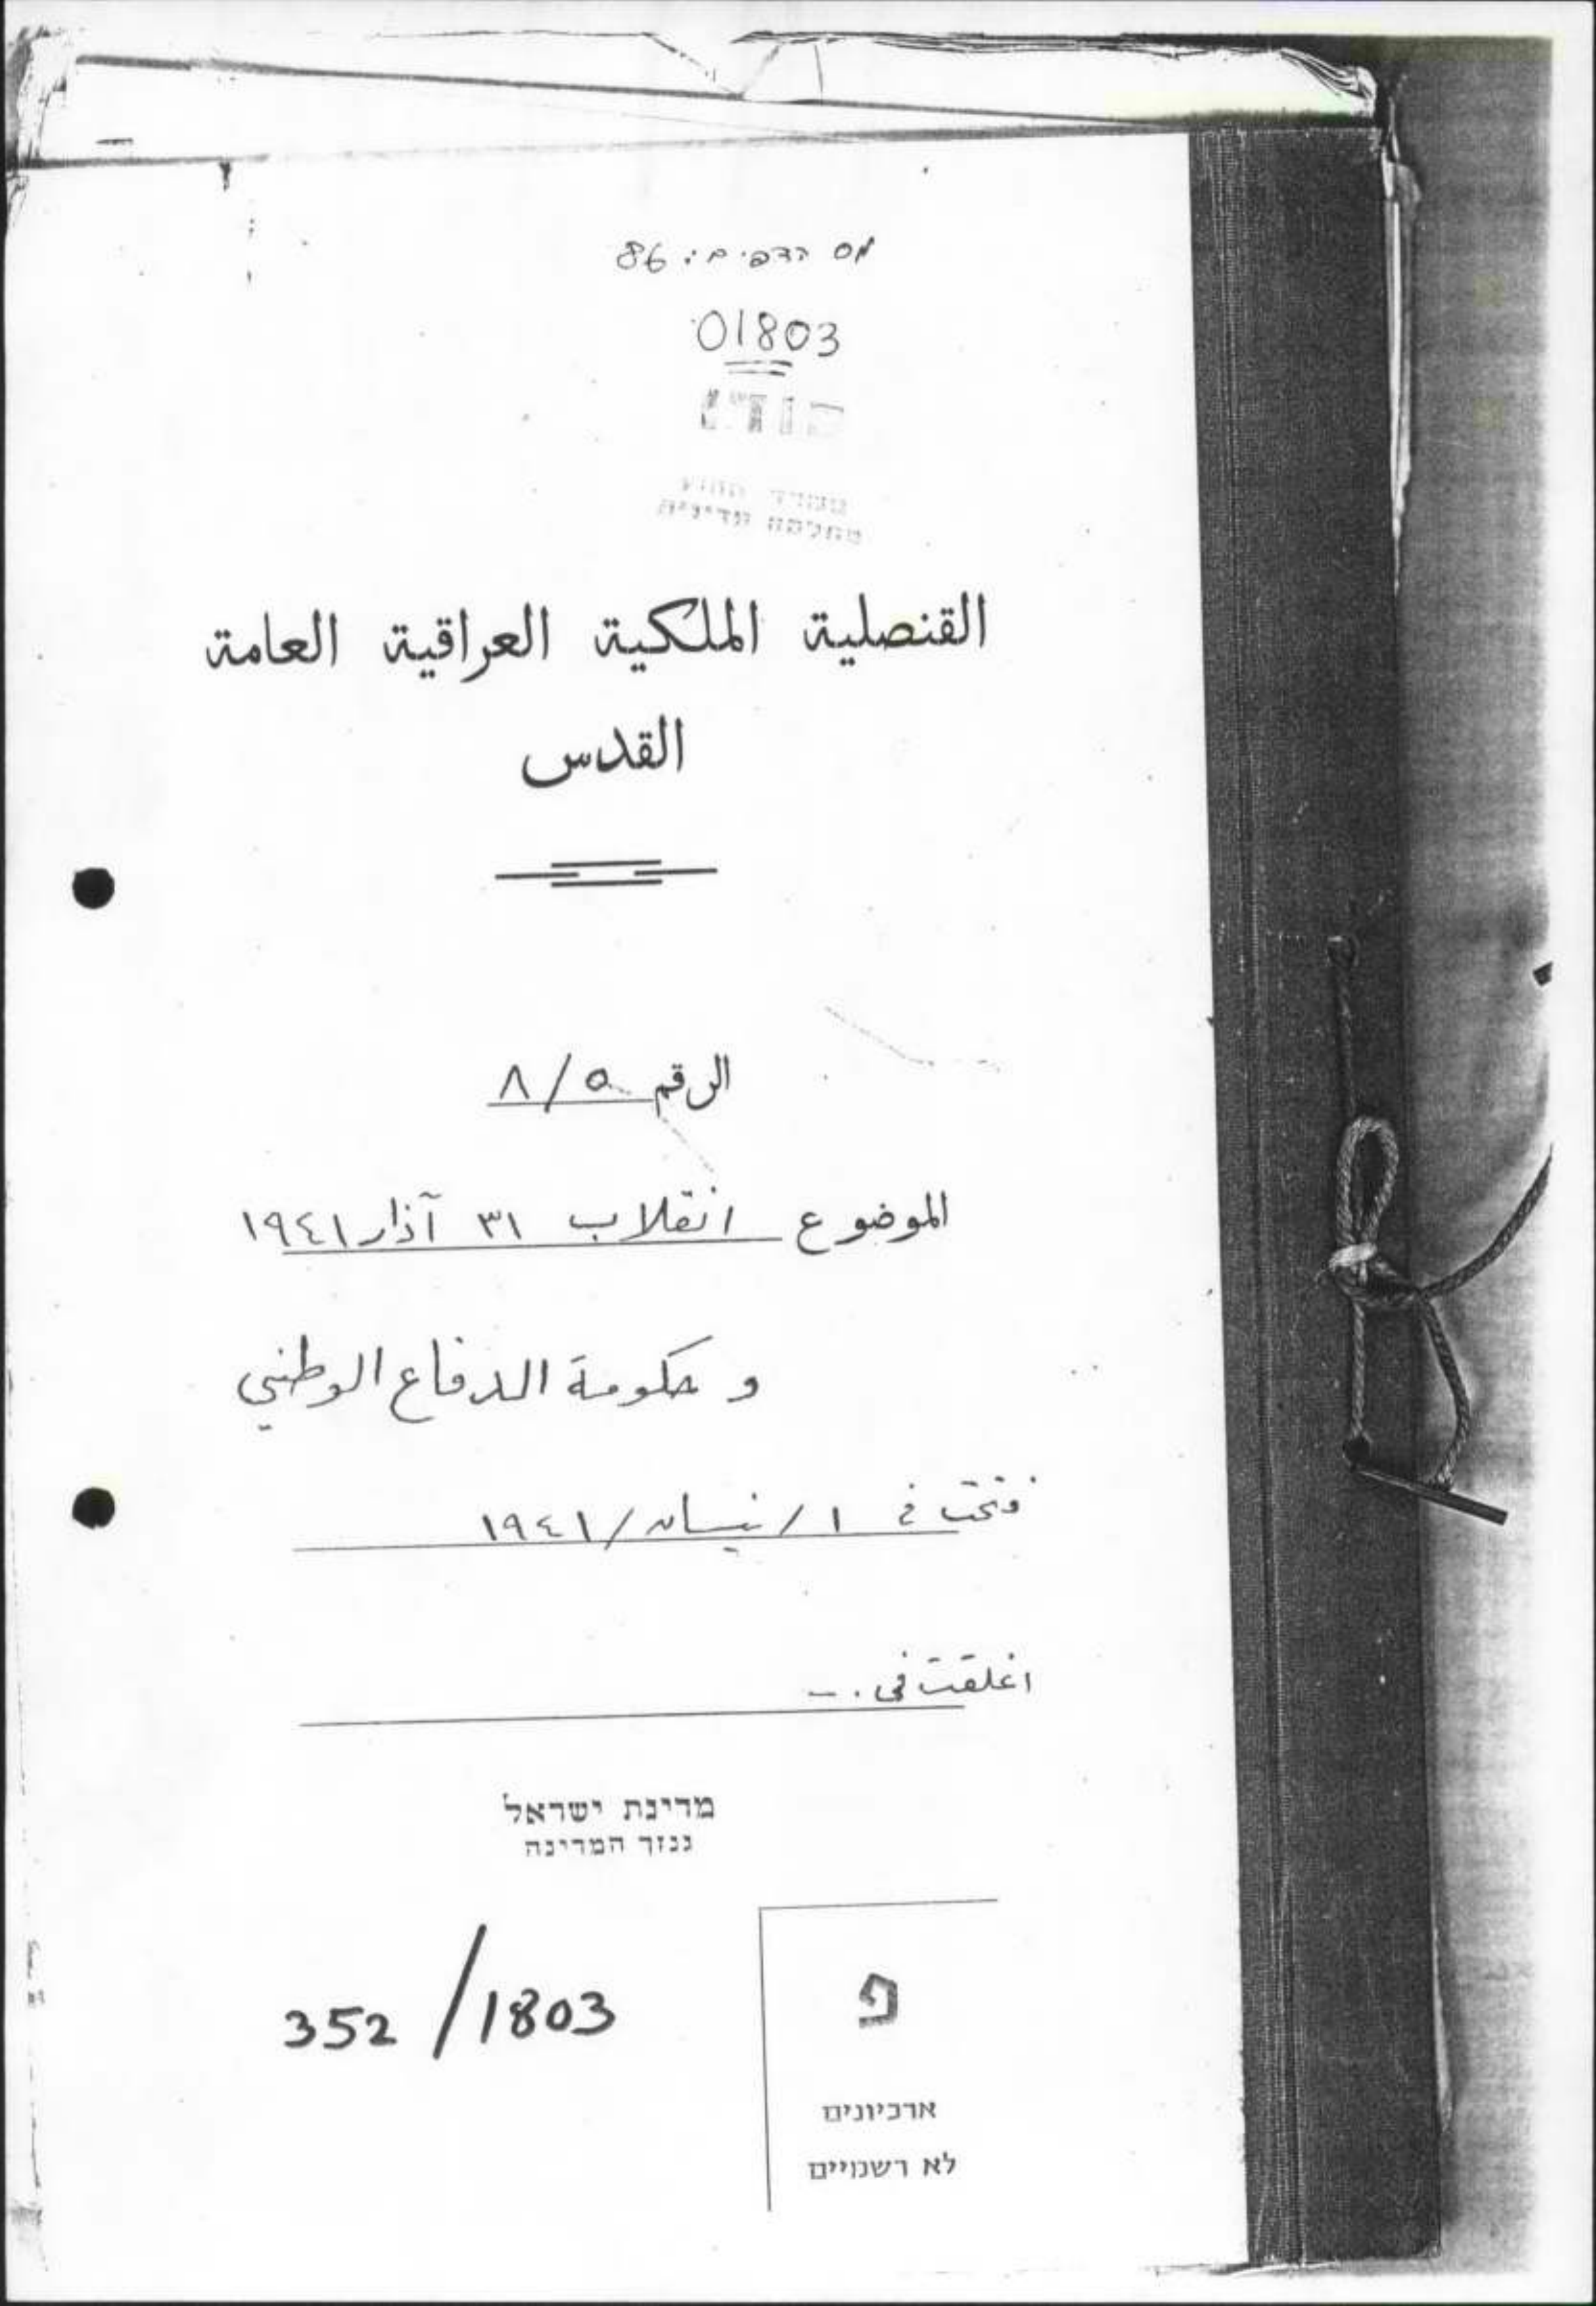 מס הדפים: 86
01803
סודי
משרד החוץ
מחלקה מדינית
القنصلية الملكية العراقية العامة
القدس
الرقم ٨/٥
الموضوع انقلاب ٣١ آذار ١٩٤١
و حكومة الدفاع الوطني
فتحت في ١/نيسان/١٩٤١
اغلقت في .-
מדינת ישראל
גנזך המדינה
352/1803
פ
ארכיונים
לא רשמיים